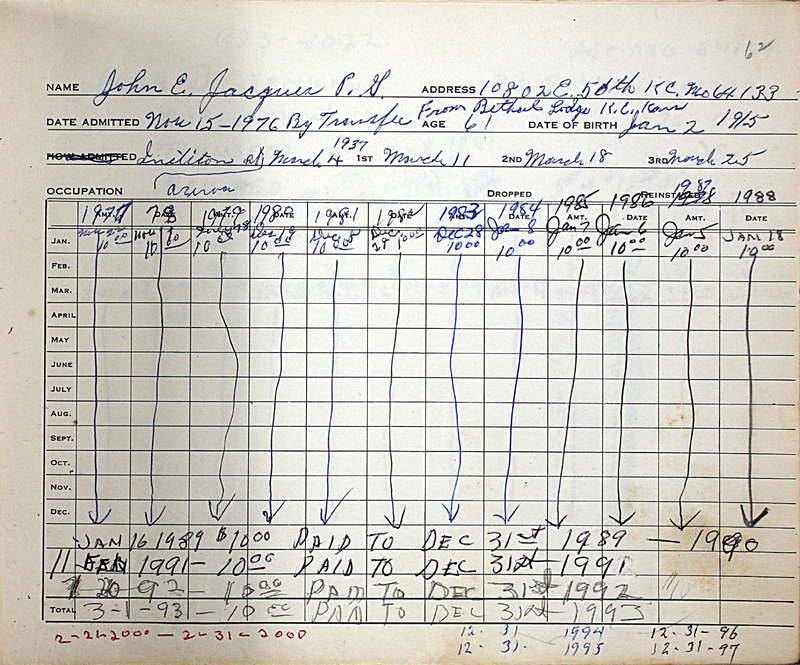 62
NAME John E. Jacques P. G. ADDRESS 10802 E. 50th K.C. Mo 64133
From Bethel Lodge K.C., Kans
DATE ADMITTED Nov 15-1976 By Transfer AGE 61 DATE OF BIRTH Jan 2 1915
NOW ADMITTED March 4 1937 1ST March 11 2ND March 18 3RD March 25
OCCUPATION DROPPED REINSTATED
1977 78 1979 1980 1981 1983 1984 1985 1986 1987 1988
DATE AMT. DATE AMT. DATE
JAN. 10 00 Nov 10 July 10 Dec 10 00 Dec 10 00 Dec 29 10 00 Dec 28 10 00 Jan 8 10 00 Jan 7 10 00 Jan 6 10 00 Jan 5 10 00 JAN 18 10 00
FEB.
MAR.
APRIL
MAY
JUNE
JULY
AUG.
SEPT.
OCT.
NOV.
DEC.
JAN 16 1989 $10 00 PAID TO DEC 31st 1989 — 1990
11 FEB 1991 - 10 00 PAID TO DEC 31st - 1991
20 92 - 10 00 PAID TO DEC 31st - 1992
TOTAL 3-1-93 - 10 00 PAID TO DEC 31st - 1993
2-21-2000 — 2-31-2000 12-31 1994 12-31-96
12-31- 1995 12-31-97